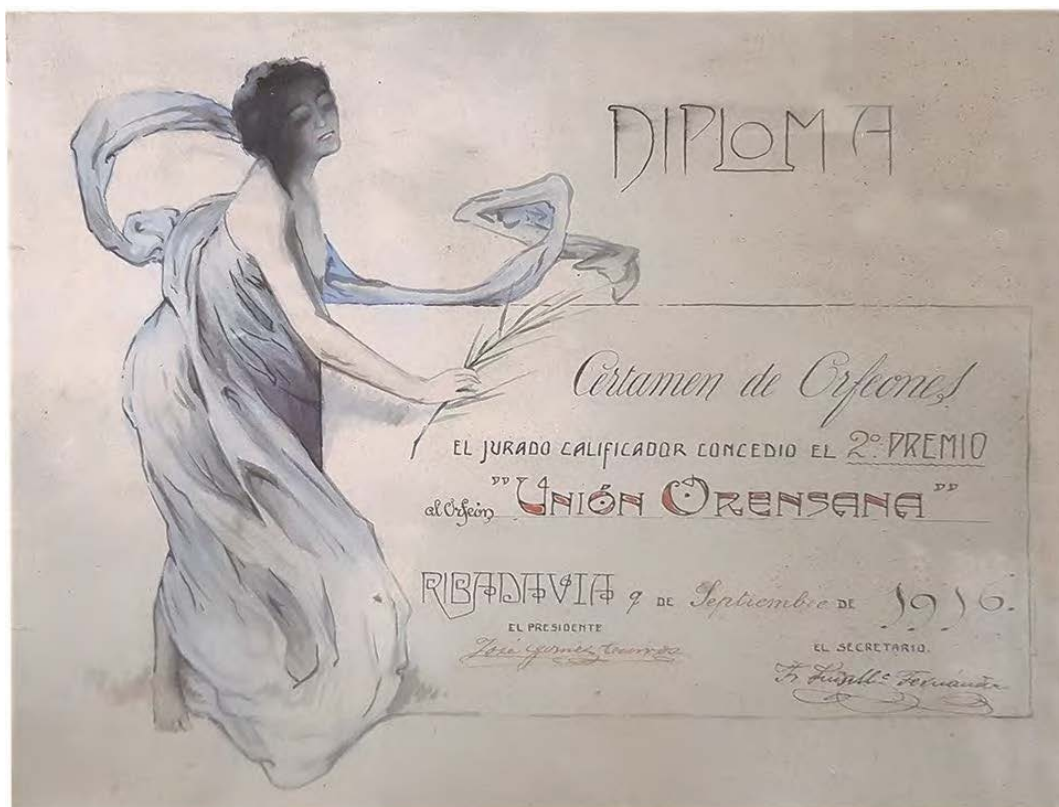 DIPLOMA
Certamen de Orfeones
EL JURADO CALIFICADOR CONCEDIO EL 2º. PREMIO
al Orfeón "UNIÓN ORENSANA"
RIBADAVIA 9 DE Septiembre DE 1916.
EL PRESIDENTE
José Gomez
EL SECRETARIO.
Fernández